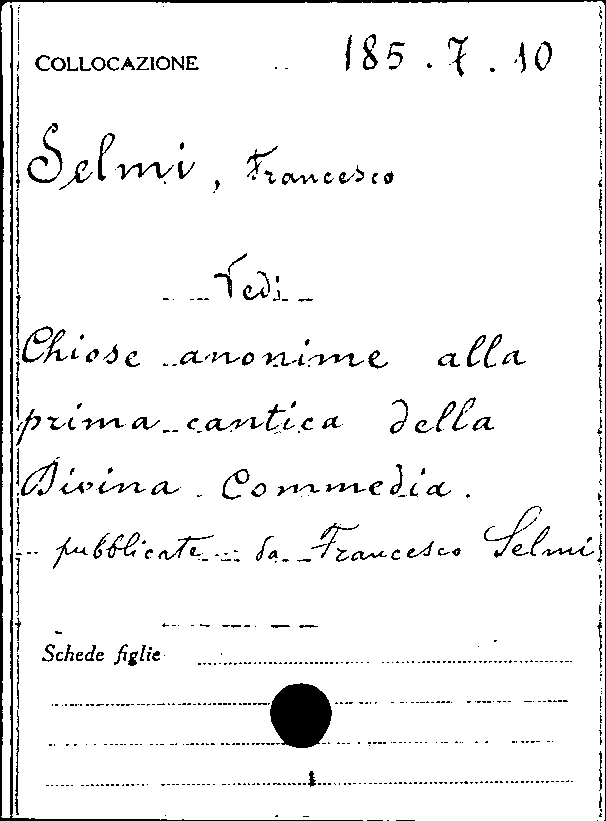 COLLOCAZIONE 185.7.10
Selmi, Francesco
Vedi
Chiose anonime alla
prima cantica della
Divina Commedia.
pubblicate da Francesco Selmi
Schede figlie